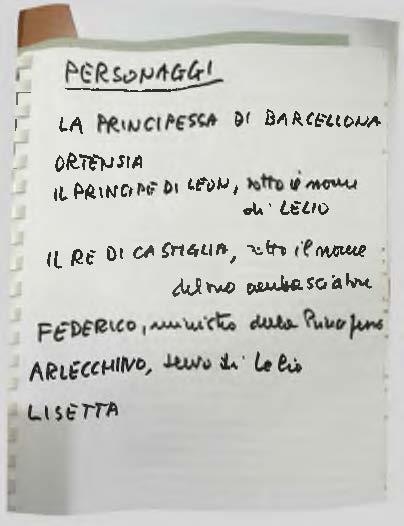 PERSONAGGI
LA PRINCIPESSA DI BARCELLONA
ORTENSIA
IL PRINCIPE DI LEON, sotto il nome
di LELIO
IL RE DI CASTIGLIA, sotto il nome
del suo ambasciatore
FEDERICO, ministro della Principessa
ARLECCHINO, servo di Lelio
LISETTA